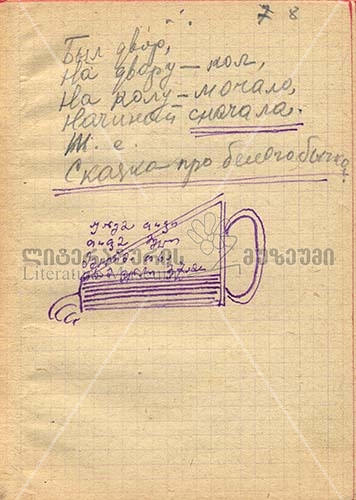 7 8
Был двор,
На двору – кол,
На колу – мочало,
Начинай сначала.
Т. е.
Сказка про белого бычка
ლიტერატურის მუზეუმი
Literature Museum